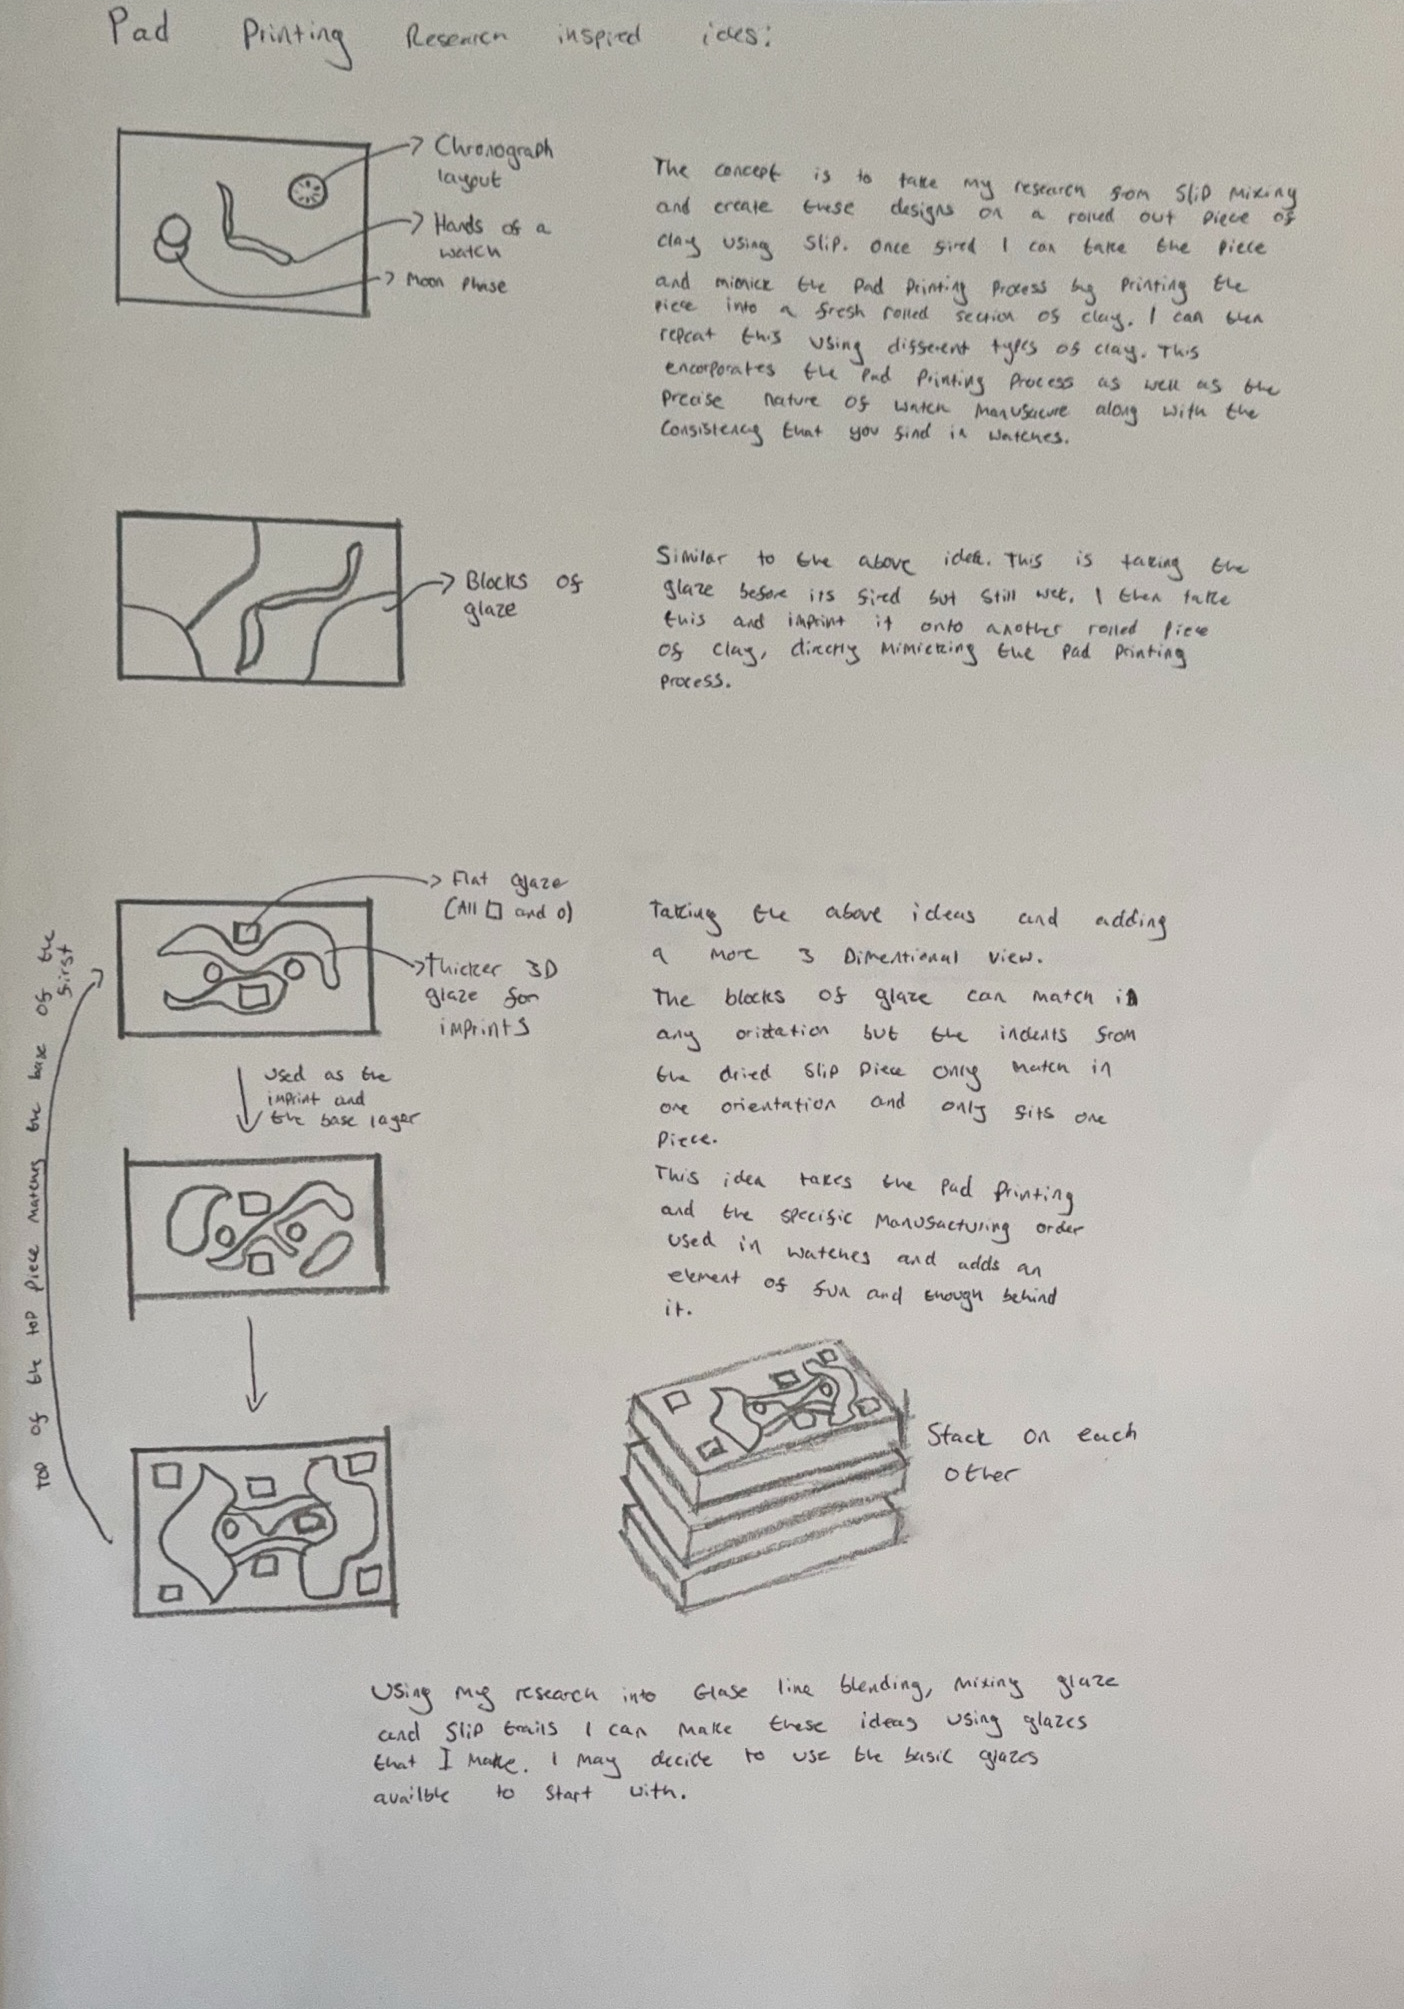 Pad Printing Research inspired ides:
Chronograph
layout
Hands of a
watch
Moon Phase
The concept is to take my research from Slip Mixing
and create these designs on a rolled out piece of
clay using Slip. Once fired I can take the piece
and mimick the Pad Printing Process by Printing the
piece into a fresh rolled section of clay. I can then
repeat this using different types of clay. This
encorporates the Pad Printing Process as well as the
Precise nature of watch Manufacure along with the
Consistency that you find in watches.
Blocks of
glaze
Similar to the above idea. This is taking the
glaze before its fired but still wet. I then take
this and imprint it onto another rolled piece
of clay, directly Mimicking the Pad Printing
Process.
Flat glaze
(All □ and o)
thicker 3D
glaze for
imprints
used as the
imprint and
the base layer
TOP of the top piece matches the base of the
first
Taking the above ideas and adding
a more 3 Dimentional view.
The blocks of glaze can match in
any oriztation but the indents from
the dried Slip Piece only match in
one orientation and only fits one
Piece.
This idea takes the Pad Printing
and the specific Manufacturing order
used in watches and adds an
element of fun and though behind
it.
Stack on each
other
Using my research into Glase line blending, mixing glaze
and Slip trails I can make these ideas using glazes
that I Make. I may decide to use the basic glazes
availble to start with.